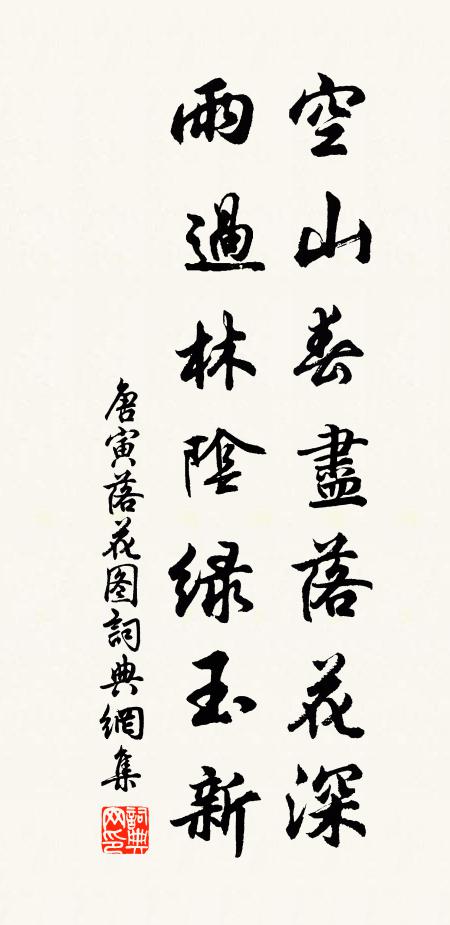 空山春盡落花深
雨過林陰綠玉新
唐寅落花图詞典網集
詞典网印